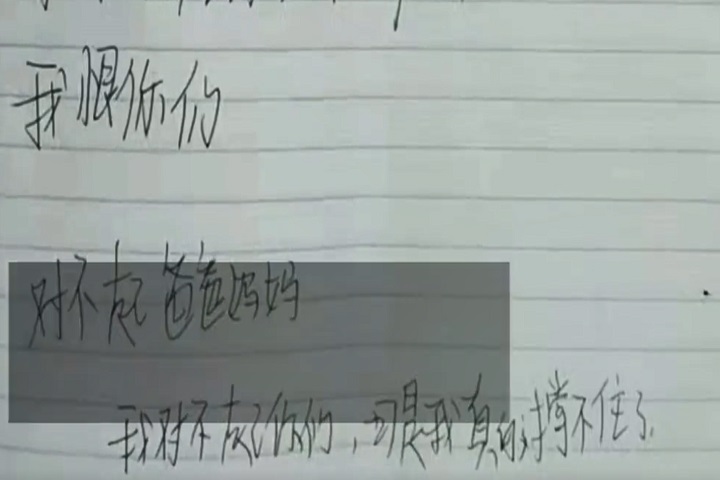 我恨你们
对不起爸爸妈妈
我对不起你们，可是我真的撑不住了